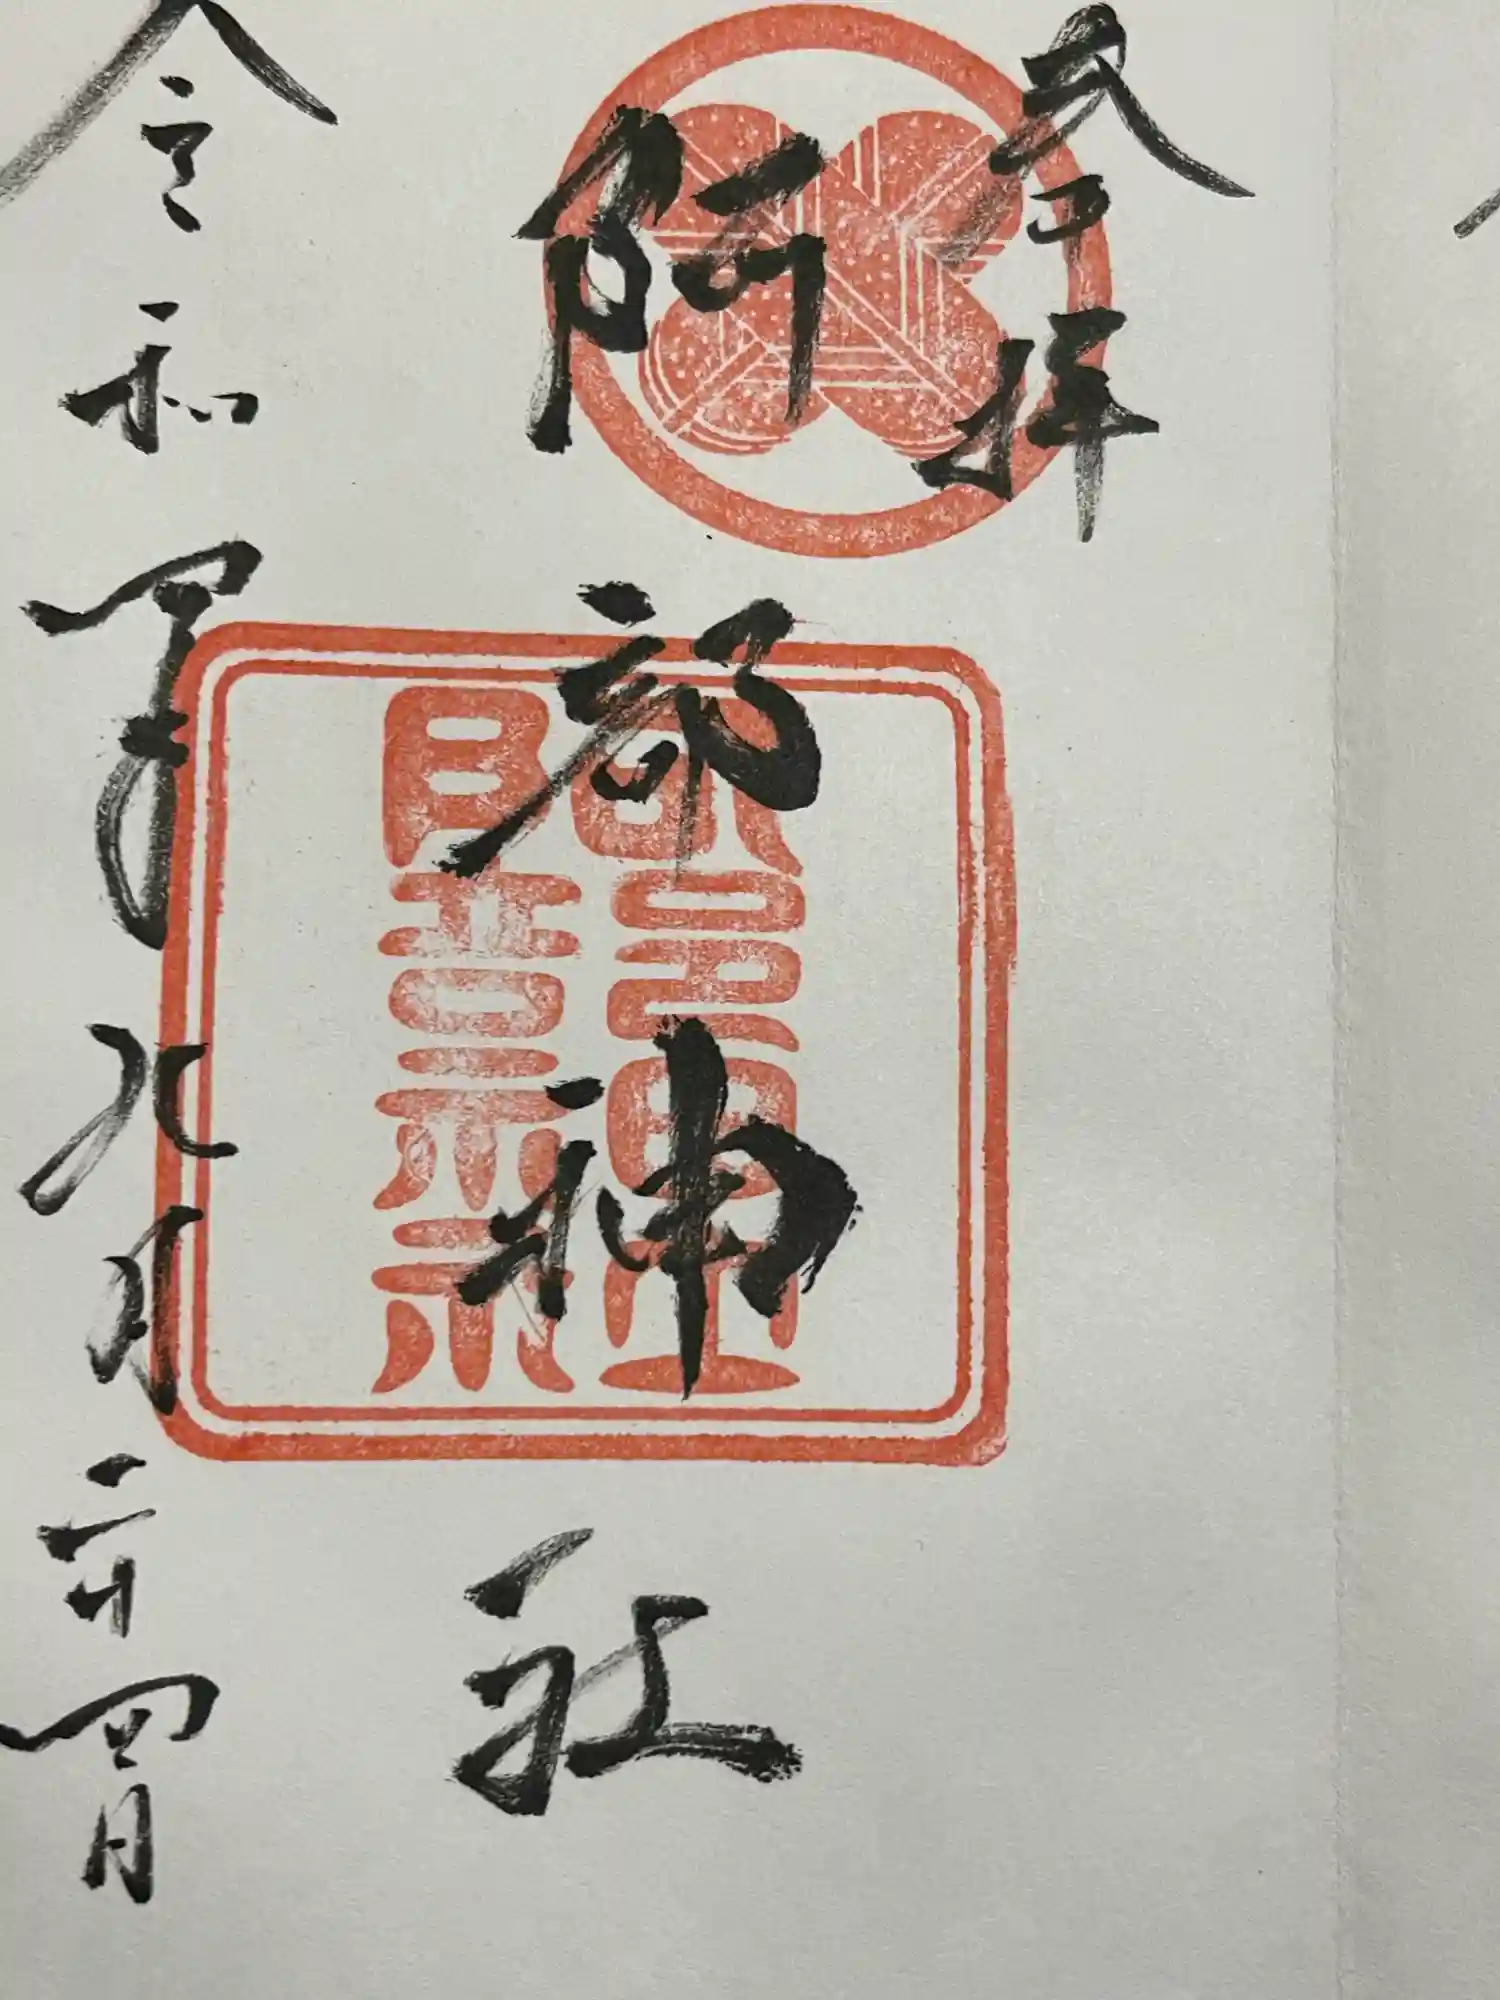 奉拝
阿部神社
阿部神社
令和四年九月二十四日